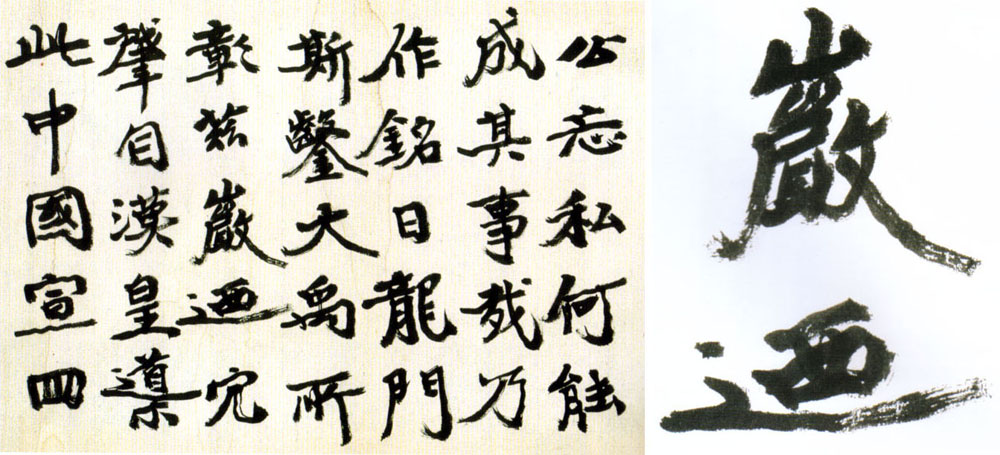 公忘私何能
成其事哉乃
作銘曰龍門
斯鑿大禹所
彰茲巖迺穴
肇自漢皇導
此中國宣四
巖迺